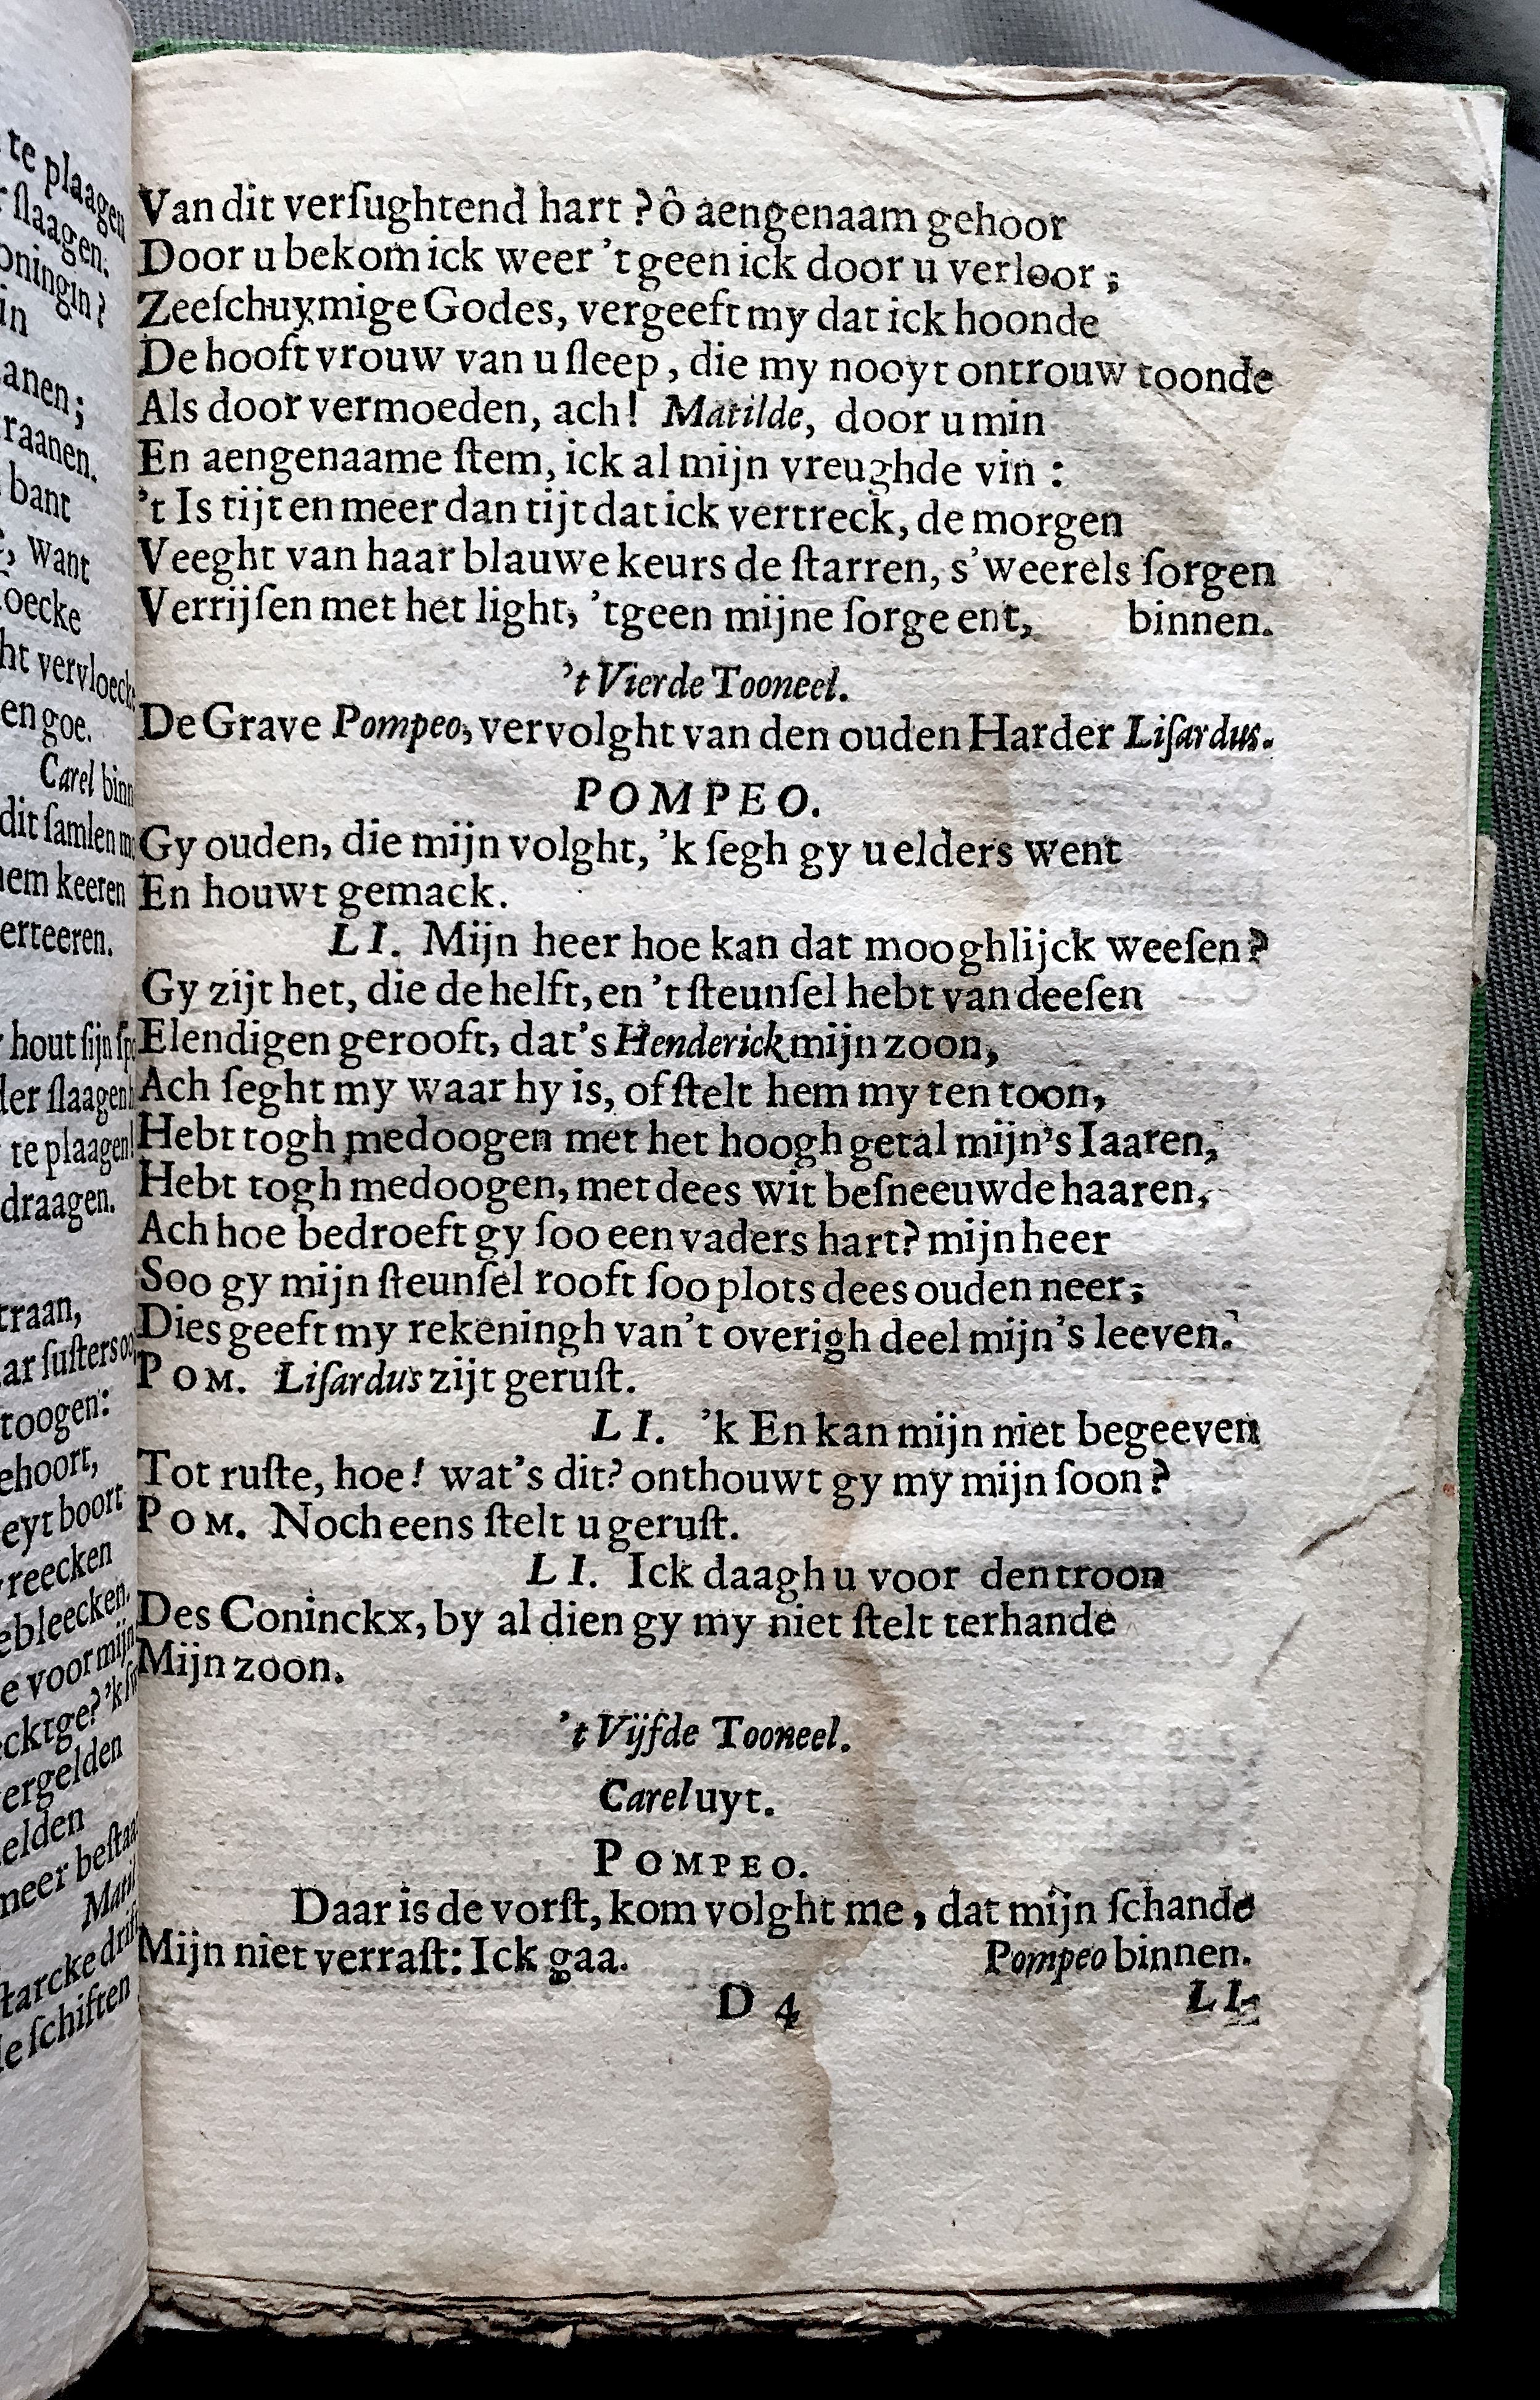 te plaagen
slaagen:
oningin?
in
anen;
raanen.
bant
, want
oecke
ht vervloeck
en goe.
Carel bin
dit samlen m
em keeren
erteeren.
hout sijn
der slaagen
te plaagen!
draagen.
traan,
ar susters
toogen:
ehoort,
eyt boort
reecken
ebleecken.
e voor mijn
cktge? 'k
ergelden
elden
meer bestaa
Matil
starcke drif
e schiften
Van dit verſughtend hart? ô aengenaam gehoor
Door u bekom ick weer 't geen ick door u verloor;
Zeeſchuymige Godes, vergeeft my dat ick hoonde
De hooft vrouw van u ſleep, die my nooyt ontrouw toonde
Als door vermoeden, ach! Matilde, door u min
En aengenaame ſtem, ick al mijn vreughde vin:
't Is tijt en meer dan tijt dat ick vertreck, de morgen
Veeght van haar blauwe keurs de ſtarren, s'weerels ſorgen
Verrijſen met het light, 'tgeen mijne ſorge ent, binnen.
't Vierde Tooneel.
De Grave Pompeo, vervolght van den ouden Harder Liſardus.
POMPEO.
Gy ouden, die mijn volght, 'k ſegh gy u elders went
En houwt gemack.
LI. Mijn heer hoe kan dat mooghlijck weeſen?
Gy zijt het, die de helft, en 't ſteunſel hebt van deeſen
Elendigen gerooft, dat's Henderick mijn zoon,
Ach ſeght my waar hy is, of ſtelt hem my ten toon,
Hebt togh medoogen met het hoogh getal mijn's Iaaren,
Hebt togh medoogen, met dees wit beſneeuwde haaren,
Ach hoe bedroeft gy ſoo een vaders hart? mijn heer
Soo gy mijn ſteunſel rooft ſoo plots dees ouden neer;
Dies geeft my rekeningh van't overigh deel mijn's leeven.
POM. Liſardus zijt geruſt.
LI. 'k En kan mijn niet begeeven
Tot ruſte, hoe! wat's dit? onthouwt gy my mijn ſoon?
POM. Noch eens ſtelt u geruſt.
LI. Ick daagh u voor den troon
Des Coninckx, by al dien gy my niet ſtelt terhande
Mijn zoon.
't Vijfde Tooneel.
Carel uyt.
POMPEO.
Daar is de vorſt, kom volght me, dat mijn ſchande
Mijn niet verraſt: Ick gaa. Pompeo binnen.
D 4 LI.